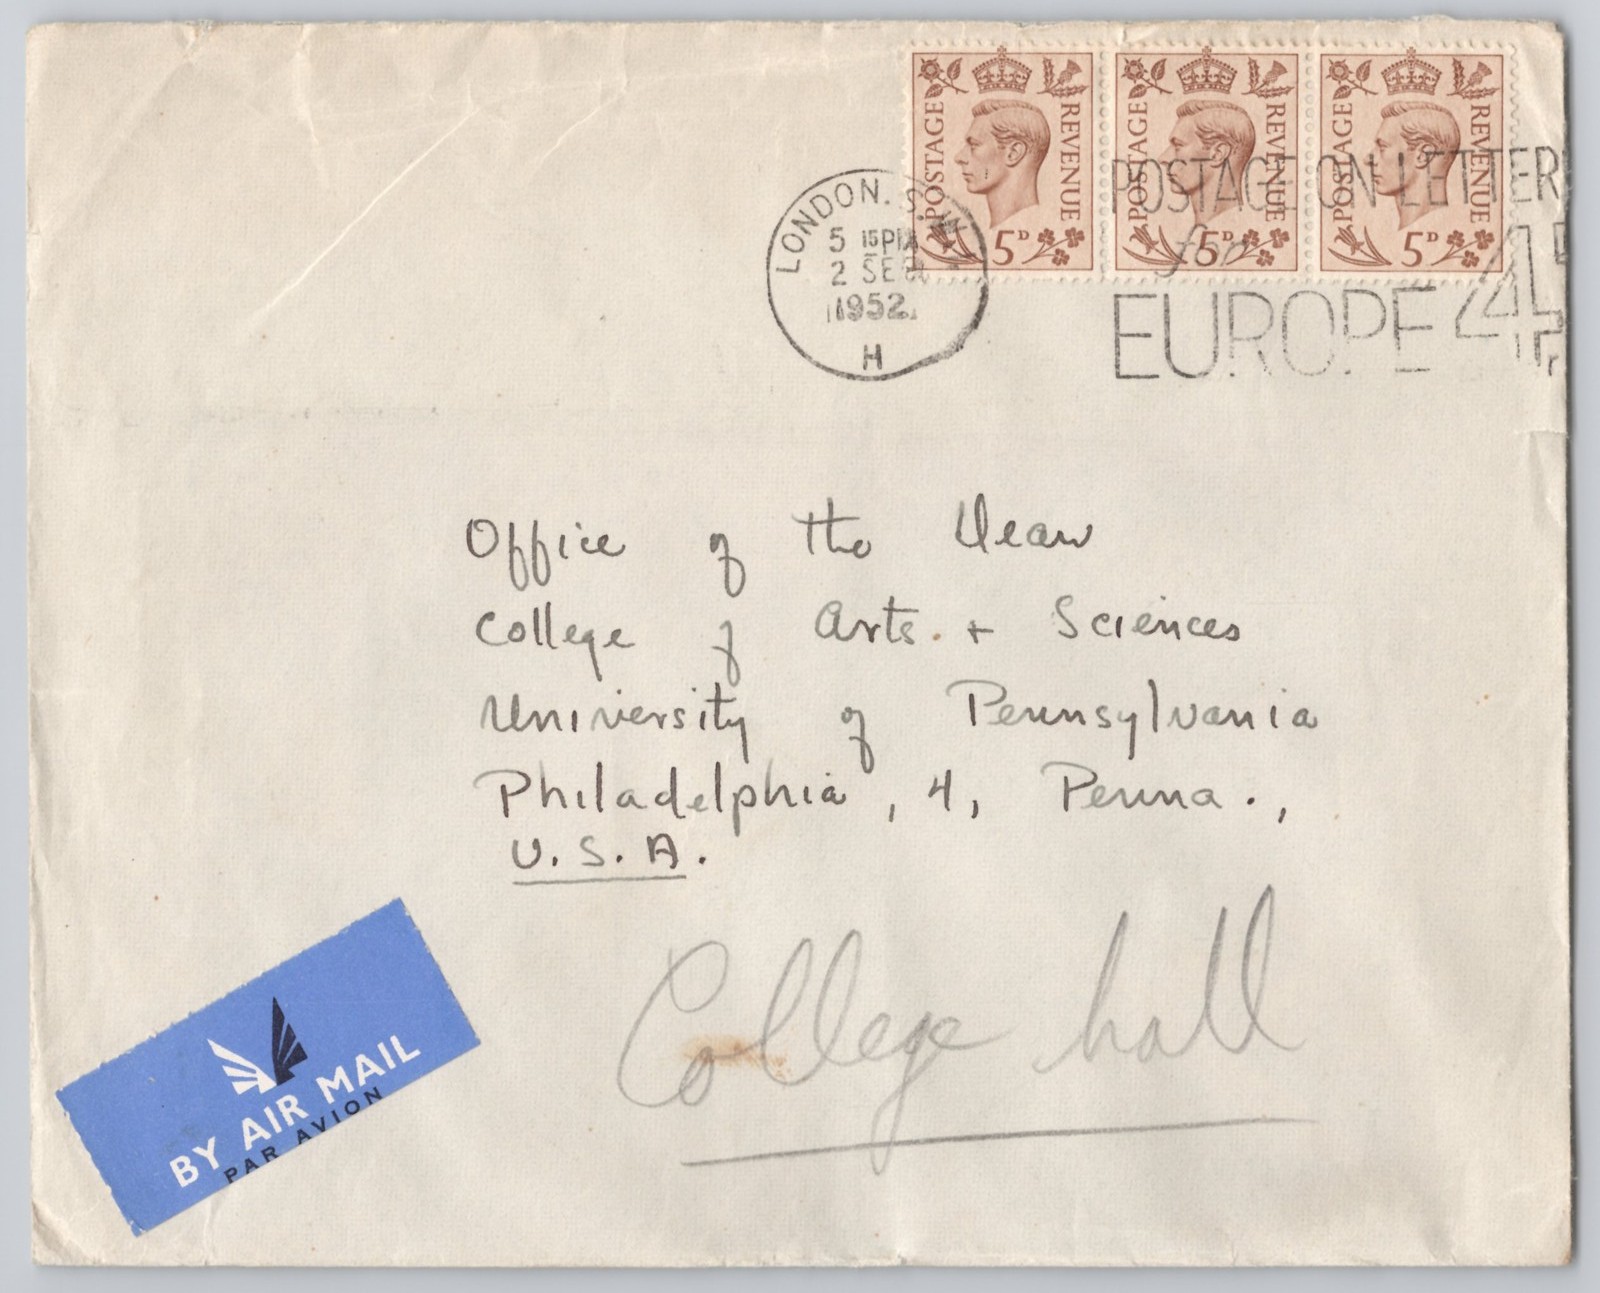 POSTAGE REVENUE 5D
POSTAGE REVENUE 5D
POSTAGE REVENUE 5D
LONDON. S.W.
5 15 PM
2 SEP
1952
H
POSTAGE ON LETTER
for
EUROPE 4D
Office of the Dean
College of Arts. + Sciences
University of Pennsylvania
Philadelphia, 4, Penna.,
U.S.A.
College hall
BY AIR MAIL
PAR AVION